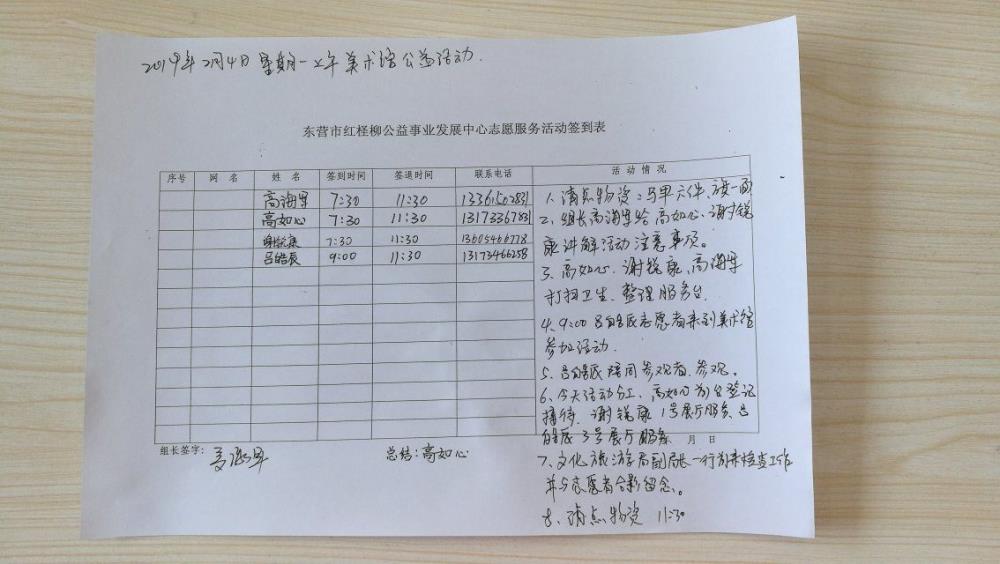 2019年2月4日 星期一上午 美术馆公益活动.
东营市红柽柳公益事业发展中心志愿服务活动签到表
序号 网 名 姓 名 签到时间 签退时间 联系电话 活 动 情 况
高海军 7:30 11:30 13361502831
高如心 7:30 11:30 13173367831
谢锐康 7:30 11:30 13605466778
吕皓辰 9:00 11:30 13173466258
1、清点物资:马甲六件、旗一面
2、组长高海军给高如心、谢锐
康讲解活动注意事项。
3、高如心、谢锐康、高海军
打扫卫生、整理服务台.
4、9:00吕皓辰志愿者来到美术馆
参加活动.
5、吕皓辰陪同参观者、参观。
6、今天活动分工、高如心前台登记
接待、谢锐康1号展厅服务、吕
皓辰3号展厅服务
月 日
7、文化旅游局副局长一行前来检查工作
并与志愿者合影留念。
8、清点物资 11:30
组长签字: 高海军 总结:高如心